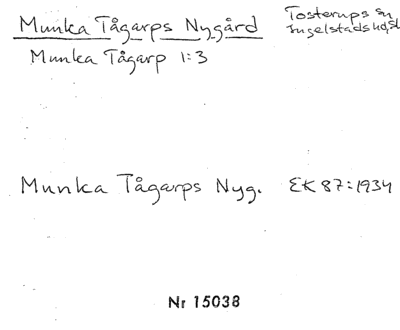 Munka Tågarps Nygård
Tosterups sn
Ingelstads hd, Sk
Munka Tågarp 1:3
Munka Tågarps Nyg. EK 87:1934
Nr 15038